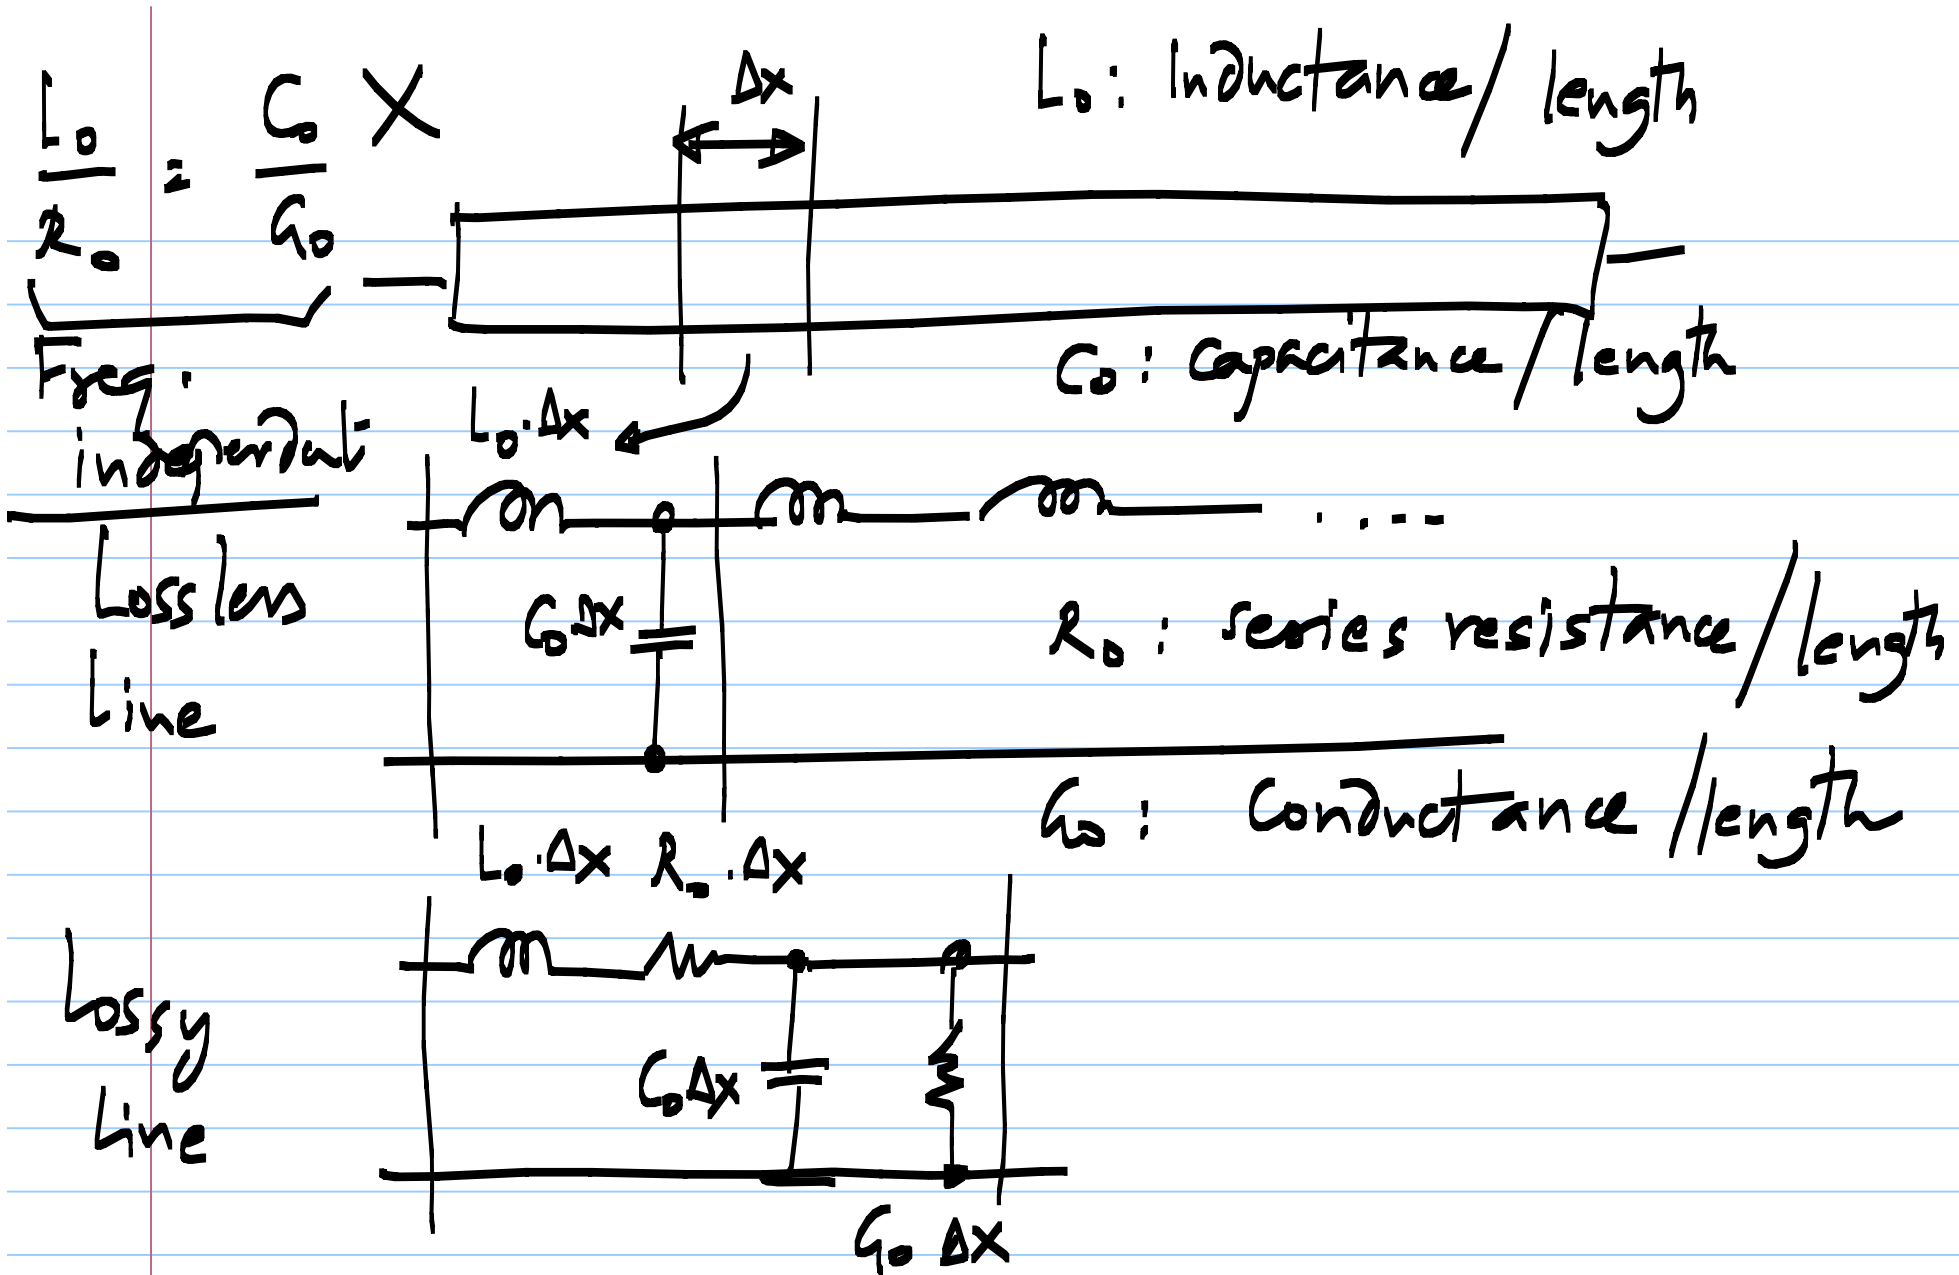 L₀/R₀ = C₀/G₀ X
Δx
L₀: Inductance/length
Freq.
independent
C₀: Capacitance/length
L₀·Δx
Lossless
Line
C₀Δx
R₀: series resistance/length
G₀: Conductance/length
L₀·Δx R₀·Δx
Lossy
Line
C₀Δx
G₀ Δx